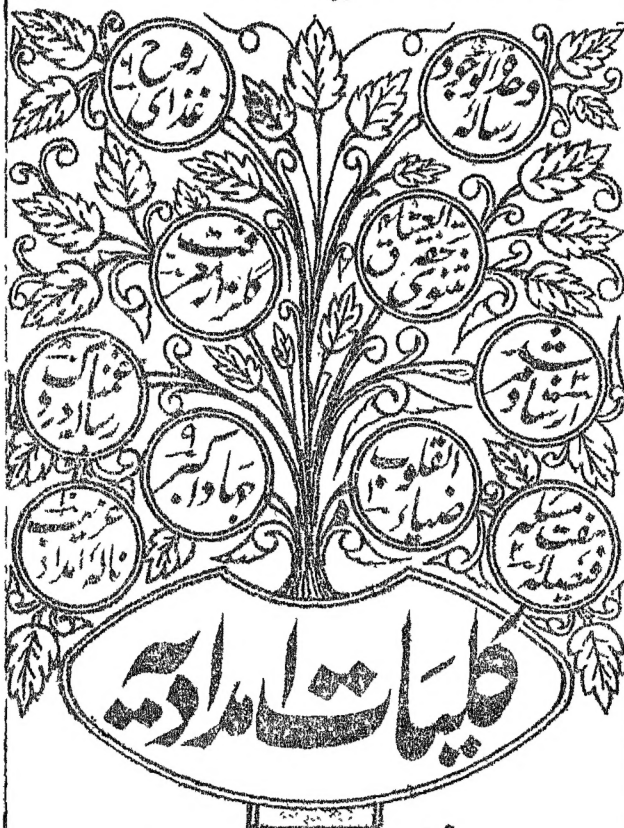 رسالہ وحدۃ الوجود
غذائے روح
مثنوی تحفۃ العشاق
گلزار معرفت
ارشاد مرشد
رسالہ درد غمناک
ضیاء القلوب
جہاد اکبر
فیصلہ ہفت مسئلہ
نالہ امداد غریب
کلیات امدادیہ